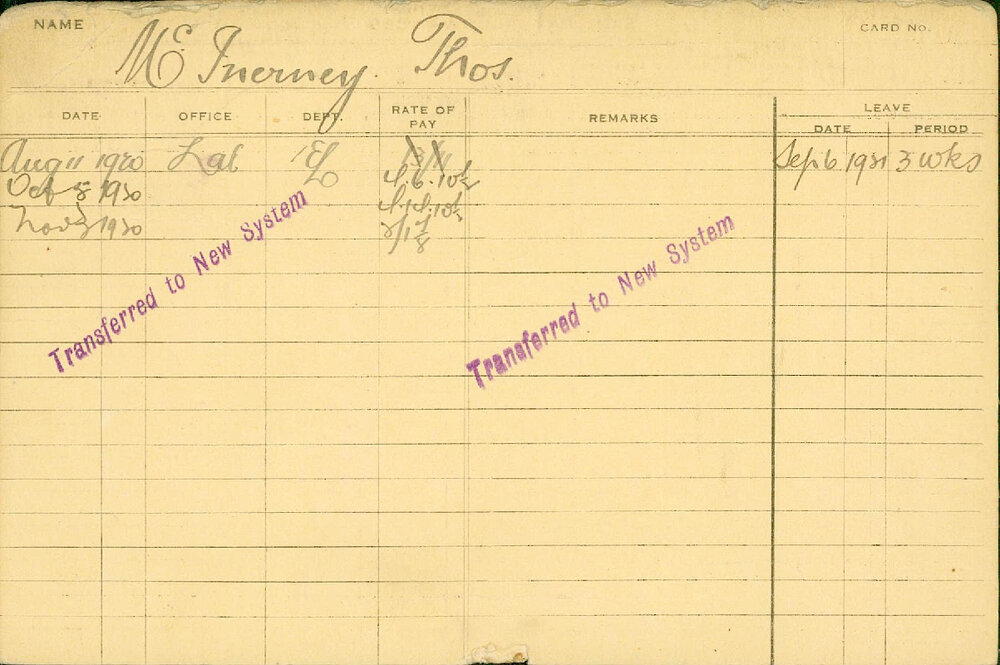 NAME
CARD No.
Mc Inerney. Thos.
DATE OFFICE DEPT. RATE OF PAY REMARKS LEAVE
DATE PERIOD
Aug 11 1920 Lab Sep 6 1921 3 wks
Oct 8 1920
Nov 3 1920
Transferred to New System
Transferred to New System